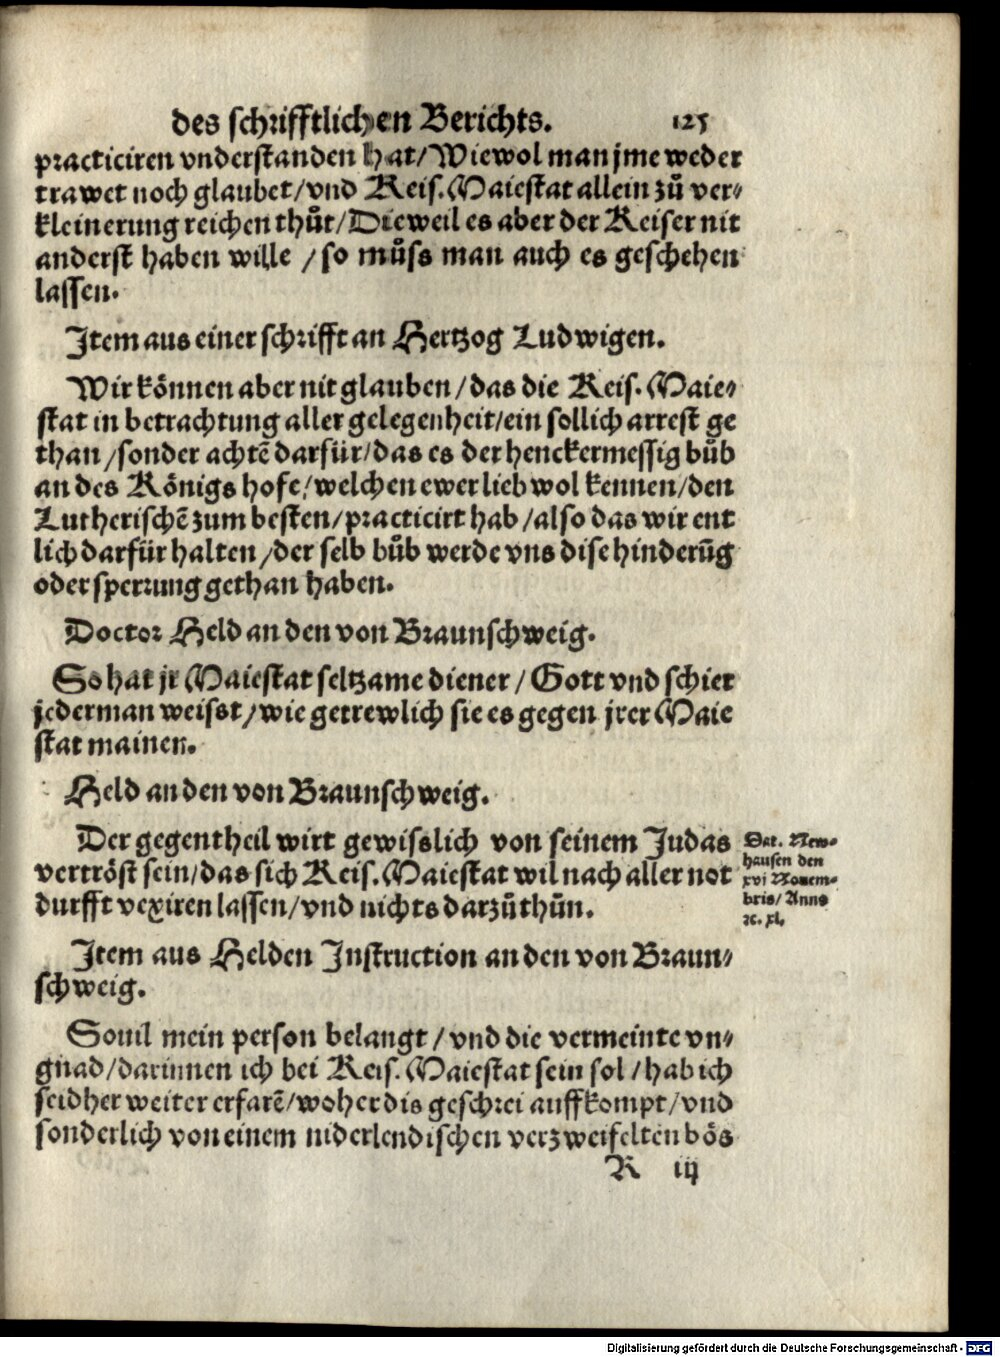 des schrifftlichen Berichts. 125
practiciren vnderstanden hat/Wiewol man jme weder
trawet noch glaubet/vnd Keis. Maiestat allein zů ver⸗
kleinerung reichen thůt/Dieweil es aber der Keiser nit
anderst haben wille /so můss man auch es geschehen
lassen.
Item aus einer schrifft an Hertzog Ludwigen.
Wir können aber nit glauben/das die Keis. Maie⸗
stat in betrachtung aller gelegenheit/ein sollich arrest ge
than/sonder achtē darfür/das es der henckermessig bůb
an des Königs hofe/welchen ewer lieb wol kennen/den
Lutherischē zum besten/practicirt hab/also das wir ent
lich darfür halten/der selb bůb werde vns dise hinderūg
oder sperrung gethan haben.
Doctor Held an den von Braunschweig.
So hat jr Maiestat seltzame diener/Gott vnd schier
jederman weisst/wie getrewlich sie es gegen jrer Maie
stat mainen.
Held an den von Braunschweig.
Der gegentheil wirt gewisslich von seinem Judas
vertröst sein/das sich Keis. Maiestat wil nach aller not
durfft vexiren lassen/vnd nichts darzů thůn.
Dat. New⸗
hausen den
xvj Nouem⸗
bris/Anno
ꝛc. xl.
Item aus Helden Instruction an den von Braun⸗
schweig.
Souil mein person belangt/vnd die vermeinte vn⸗
gnad/darinnen ich bei Keis. Maiestat sein sol/hab ich
seidher weiter erfarē/woher dis geschrei auffkompt/vnd
sonderlich von einem niderlendischen verzweifelten bös
R iij
Digitalisierung gefördert durch die Deutsche Forschungsgemeinschaft - DFG